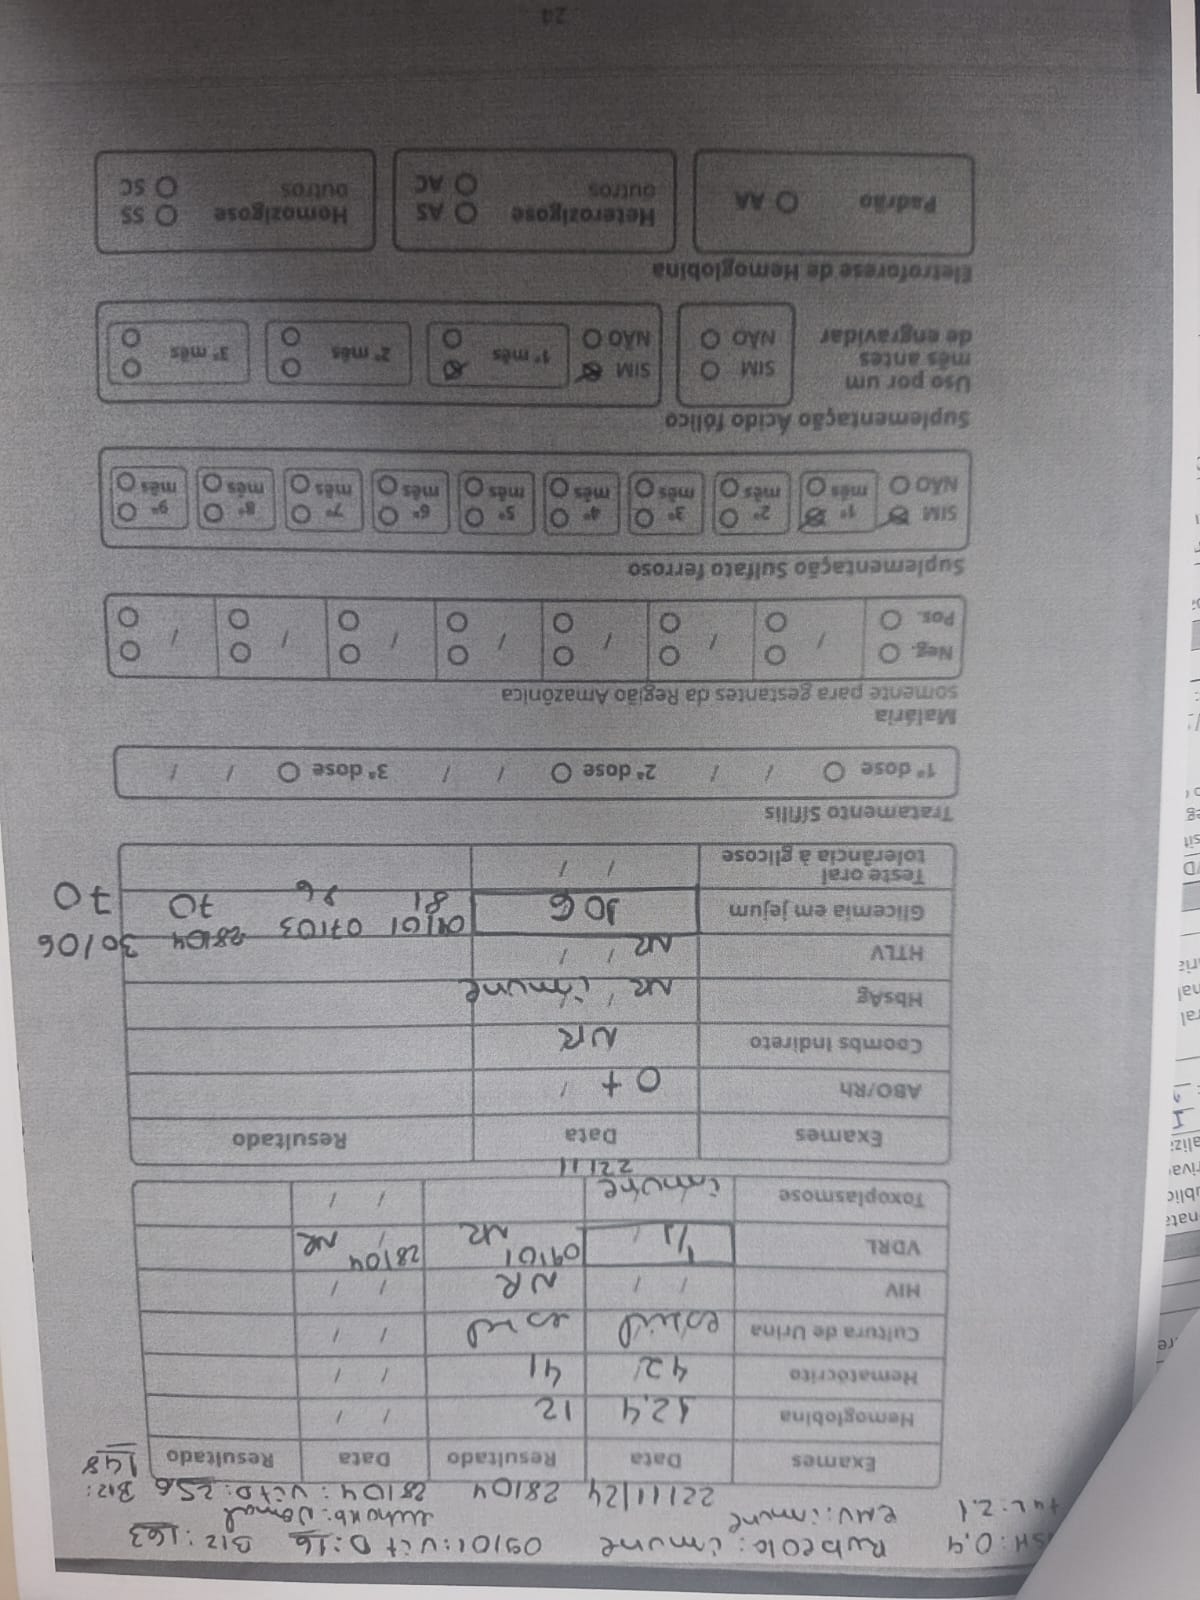 TSH: 0,4 Rubeola: imune 09/01: Vit D: 16 B12: 163
t4L: 2,1 CMV: imune eletro Hb: Normal
22/11/24 28/04 28/04: Vit D: 25,6 B12: 148
Exames Data Resultado Data Resultado
Hemoglobina 12,4 12 / /
Hematócrito 42 41 / /
Cultura de Urina estéril estéril / /
HIV / / NR / /
VDRL 1/1 09/01 NR 28/04 NR
Toxoplasmose imune / /
22/11
Exames Data Resultado
ABO/Rh O+
Coombs Indireto NR
HbsAg NR imune
HTLV NR / /
09/01 07/03 28/04 30/06
Glicemia em jejum 106 81 76 70 70
Teste oral
tolerância à glicose / /
Tratamento Sífilis
1ª dose / / 2ª dose / / 3ª dose / /
Malária
somente para gestantes da Região Amazônica
Neg. / / / / / / /
Pos.
Suplementação Sulfato ferroso
SIM 1º 2º 3º 4º 5º 6º 7º 8º 9º
NÃO mês mês mês mês mês mês mês mês mês
Suplementação Ácido fólico
Uso por um
mês antes
de engravidar
SIM
NÃO
SIM
NÃO
1º mês 2º mês 3º mês
Eletroforese de Hemoglobina
Padrão AA
Heterozigose AS
outros AC
Homozigose SS
outros SC
24